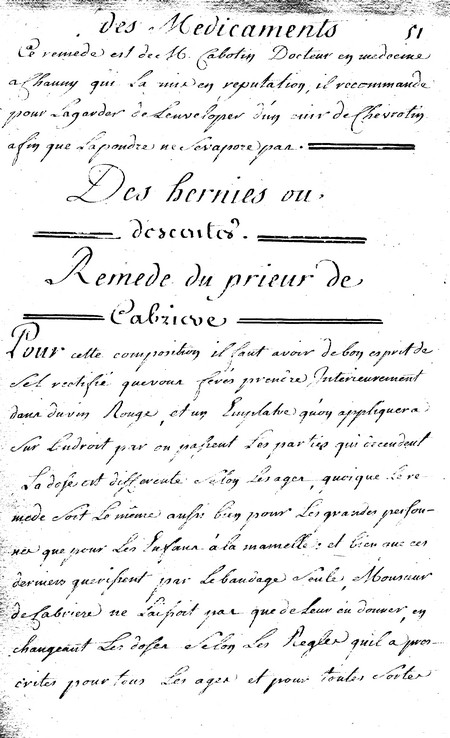 des Medicaments 51
Ce remede est de M. Cabotin Docteur en medecine
a Chauny qui la mis en reputation, il recommande
pour La garder de Lenveloper d'un cuir de Chevrotin
afin que La poudre ne Sevapore pas.
Des hernies ou
descentes.
Remede du prieur de
Cabrieve
Pour cette composition il faut avoir de bon esprit de
Sel rectifié que vous ferés prendre Interieurement
dans du vin Rouge, et un Emplatre qu'on appliquera
Sur L'endroit par ou passent Les parties qui descendent
La dose est differente Selon Les ages, quoique Le re-
mede Soit Le même aussi bien pour Les grandes person-
nes que pour Les Enfans à la mamelle; et bien que ces
derniers guerissent par Le bandage Seule, Monsieur
de Cabriere ne Laissoit pas que de Leur en donner, en
changeant Les doses Selon Les Regles qu'il a pros-
crites pour tous Les ages et pour toutes Sortes